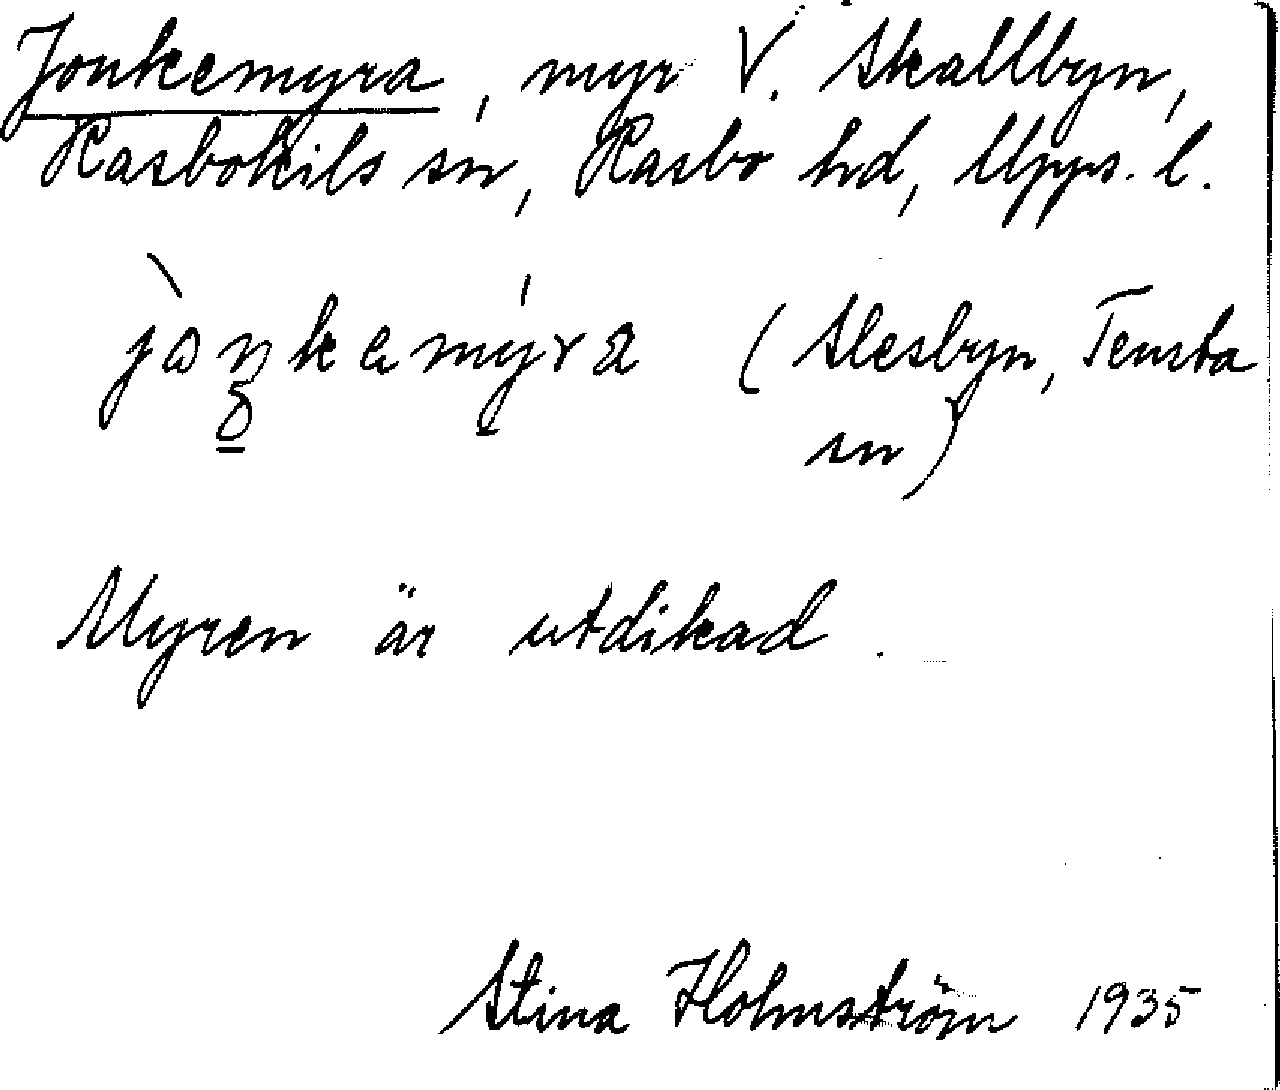 Jonkemyra, myr V. Skallbyn,
Rasbokils sn, Rasbo hd, Upps. l.
jòŋkemy̍ra (Alesbyn, Tensta
sn)
Myren är utdikad.
Stina Holmström 1935